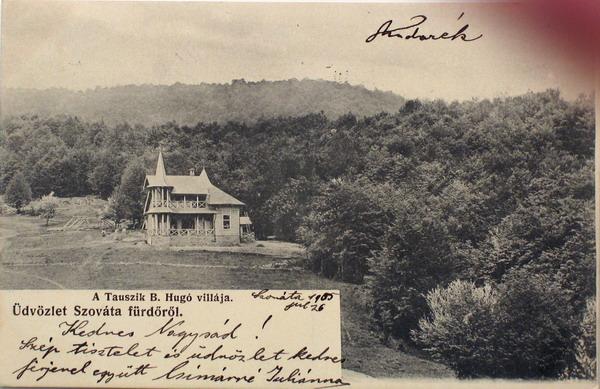 A Tauszik B. Hugó villája.
Üdvözlet Szováta fürdőről.
Szováta 1905
jul 26
Kedves Nagysád!
Szép tisztelet és üdvözlet kedves
férjével együtt Csimárné Juliánna